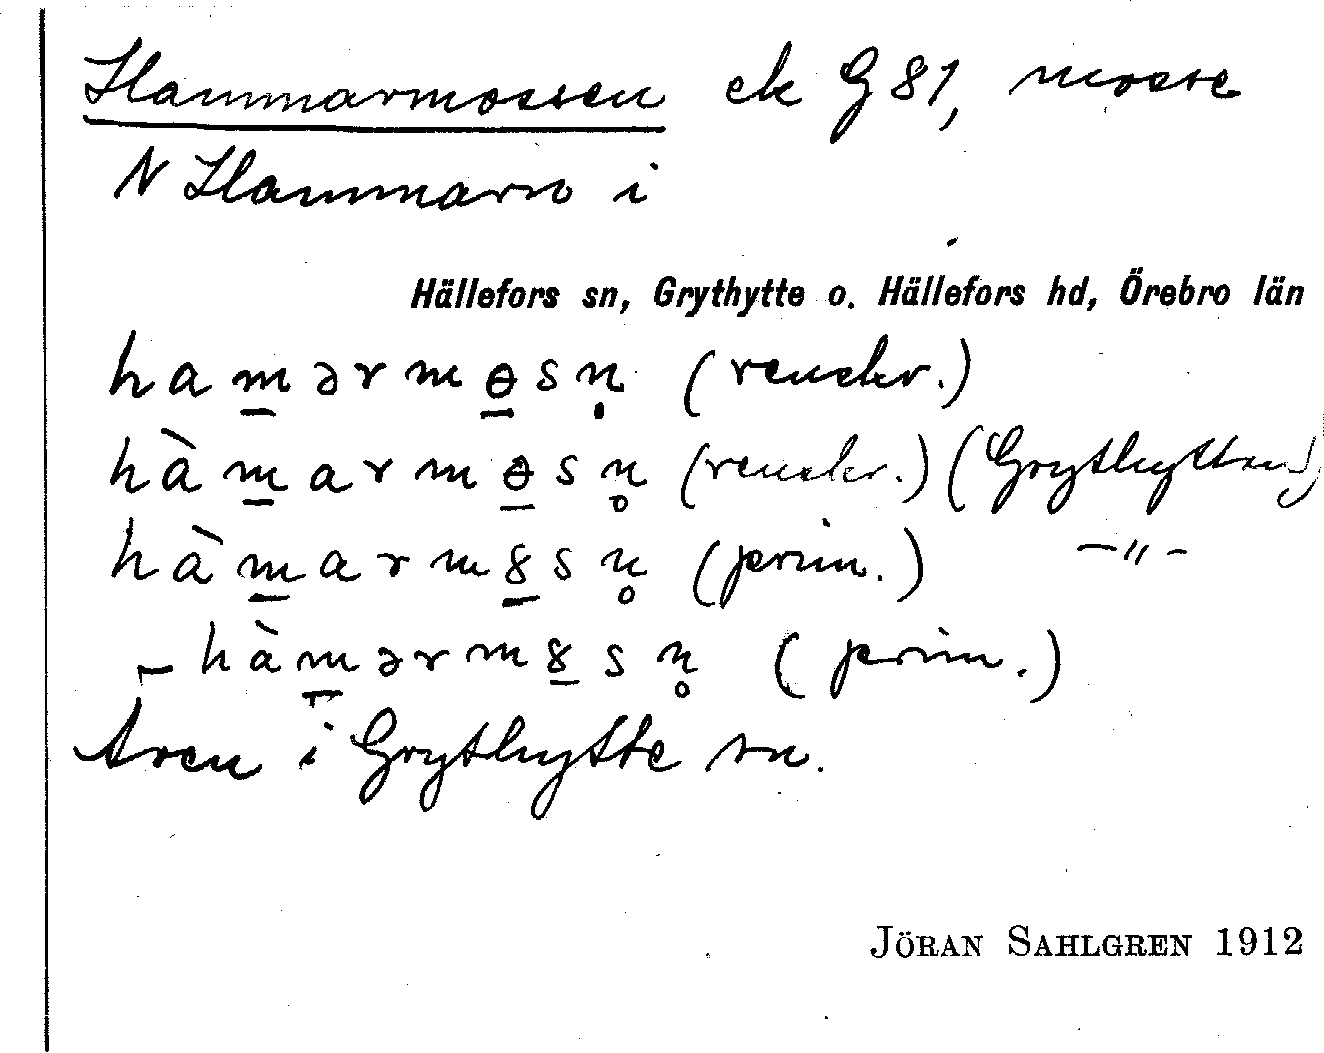 Hammarmossen ek G 81, mosse
N Hammarn i
Hällefors sn, Grythytte o. Hällefors hd, Örebro län
ham̲ərmɵ̲sṇ (renskr.)
hàm̲armɵ̲sn̥ (renskr.) (Grythyttan)
hàm̲arm8̲sn̥ (prim.) –"–
– hàm̲ərm8̲sn̥ (prim.)
Även i Grythytte sn.
JÖRAN SAHLGREN 1912